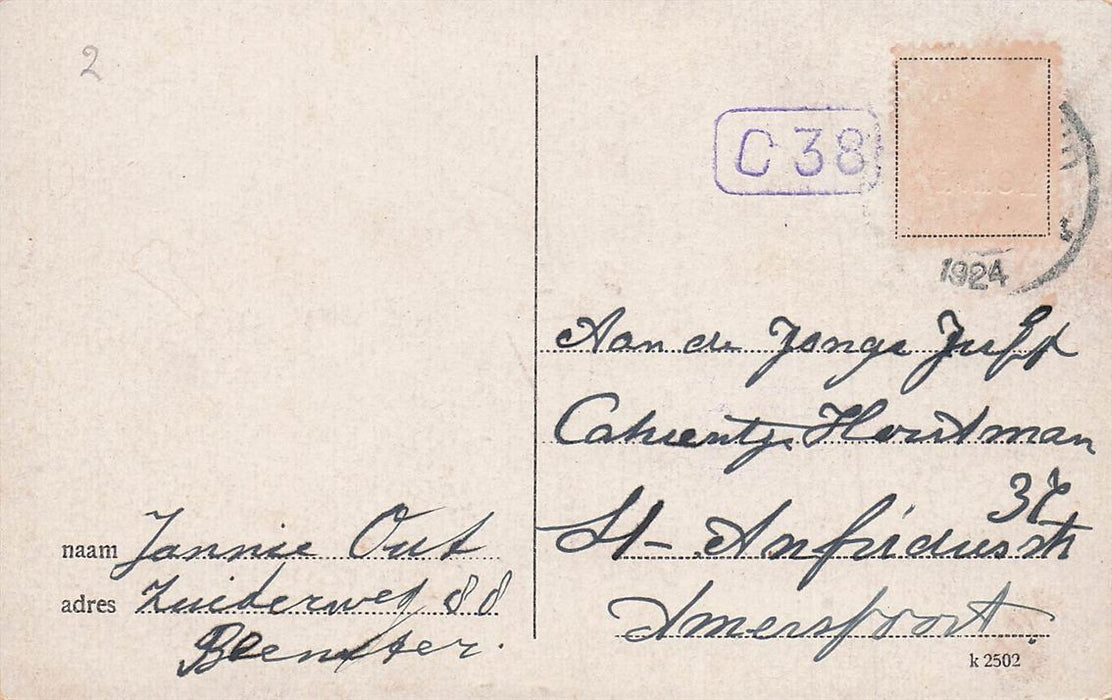 2
C 38
1924
Aan de Jonge Juff
Catrientje Houtman
37
St-Anfridusstr
Amersfoort.
naam Jannie Out
adres Zuiderweg 88
Beemster.
k 2502